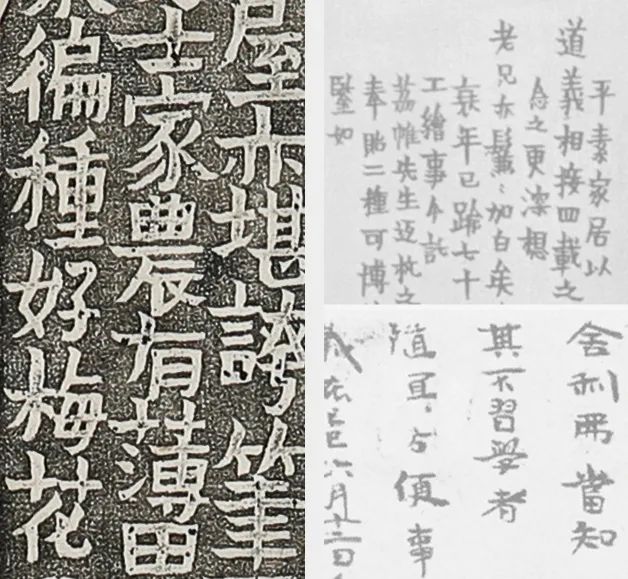 屋亦堪誇筆
士家農有薄田
徧種好梅花
平素家居以
道義相接四載之
念之更深想
老兄亦加白矣
衰年已踰七十
工繪事今託
荔帷先生返杭之
奉貽二種可博
如
舍利弗當知
其不習學者
隨宜方便事
六月十三日